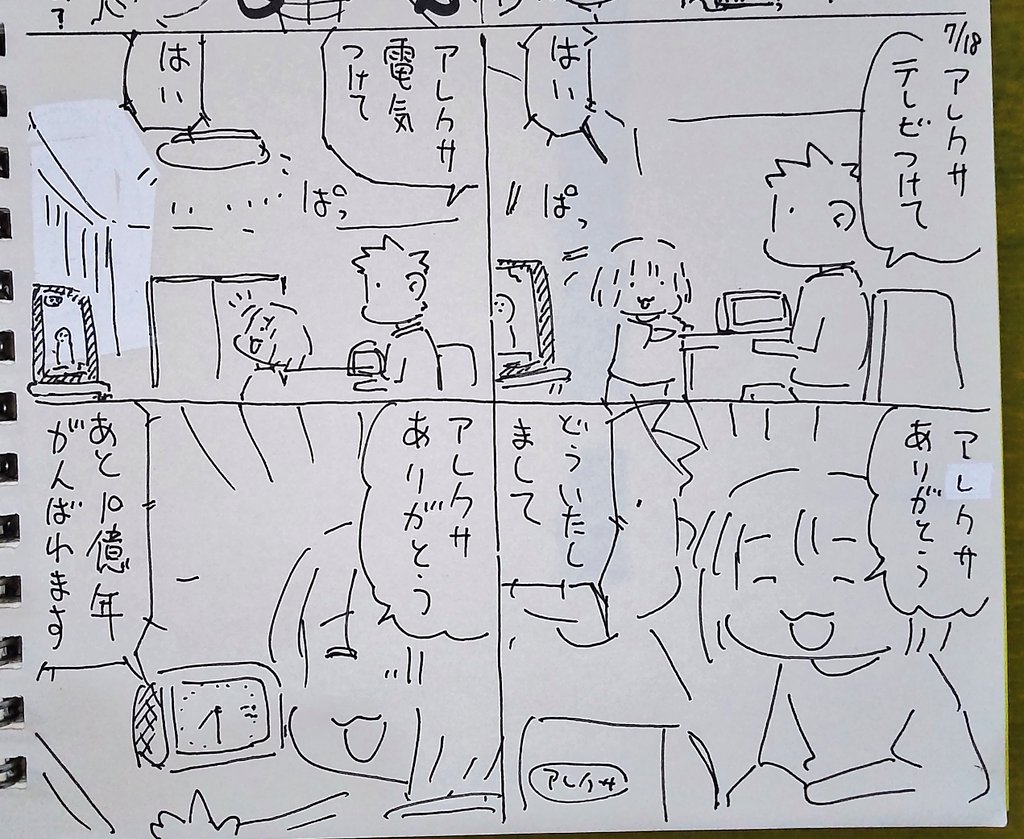 7/18
アレクサ
テレビつけて
はい
ぱっ
アレクサ
電気
つけて
はい
ぱっ
アレクサ
ありがとう
どういたし
まして
アレクサ
アレクサ
ありがとう
あと10億年
がんばれます
?